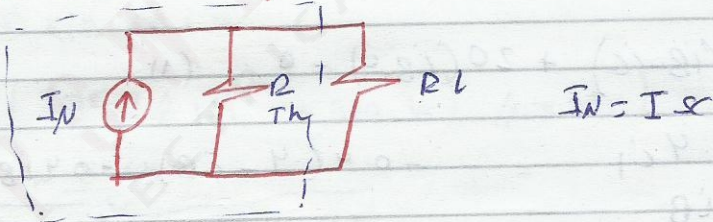 IN R Th RL IN = I sc